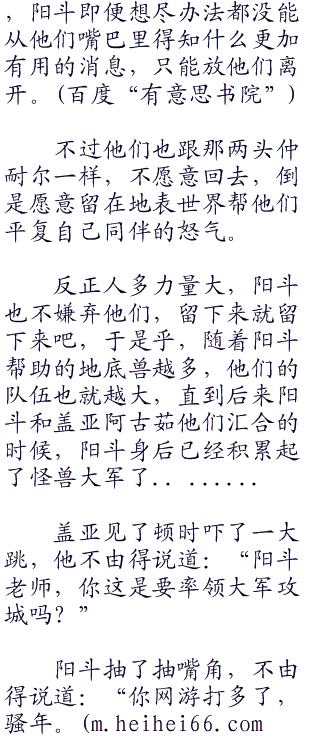 ，阳斗即便想尽办法都没能
从他们嘴巴里得知什么更加
有用的消息，只能放他们离
开。(百度“有意思书院”)
不过他们也跟那两头仲
耐尔一样，不愿意回去，倒
是愿意留在地表世界帮他们
平复自己同伴的怒气。
反正人多力量大，阳斗
也不嫌弃他们，留下来就留
下来吧，于是乎，随着阳斗
帮助的地底兽越多，他们的
队伍也就越大，直到后来阳
斗和盖亚阿古茹他们汇合的
时候，阳斗身后已经积累起
了怪兽大军了．．……
盖亚见了顿时吓了一大
跳，他不由得说道：“阳斗
老师，你这是要率领大军攻
城吗？”
阳斗抽了抽嘴角，不由
得说道：“你网游打多了，
骚年。(m.heihei66.com